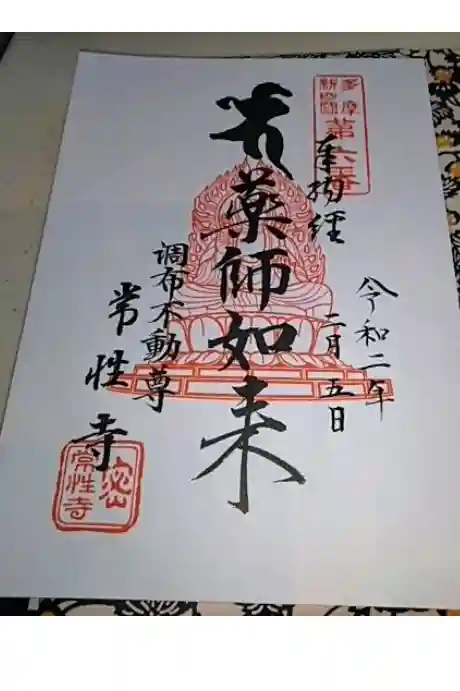 多摩
新四国
第六番
奉拝経
令和二年
二月五日
薬師如来
調布不動尊
常性寺
密
常性寺